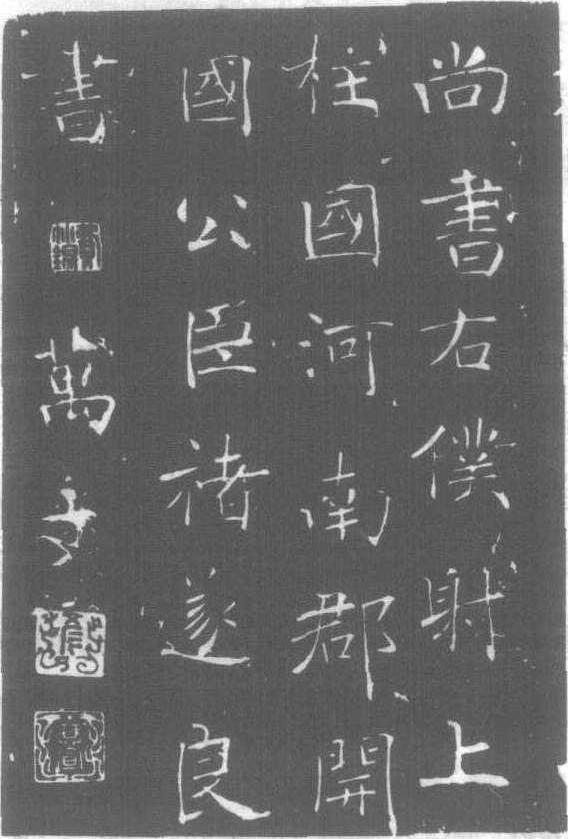 尚書右僕射上
柱國河南郡開
國公臣褚遂良
書
萬